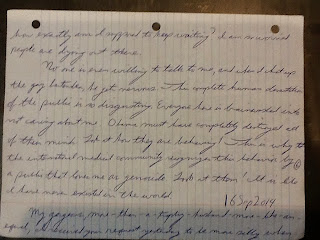 how exactly am I supposed to keep waiting? I am so worried
people are dying out there.
No one is even willing to talk to me, and when I chat up
the guy he gets nervous. The complete human
of the public is so disgusting. Everyone has is brainwashed into
not caring about me. Obama must have completely destroyed all
of their minds. Look at how they are behaving! This is why
the international medical community recognizes this behavior by
a public that love me as genocide. Look at them! It is like
I have never existed in the world.
16 Sep 2014
My gorgeous, more-than-a-trophy-husband more-like-an-
equal, your request yesterday to be more silly when